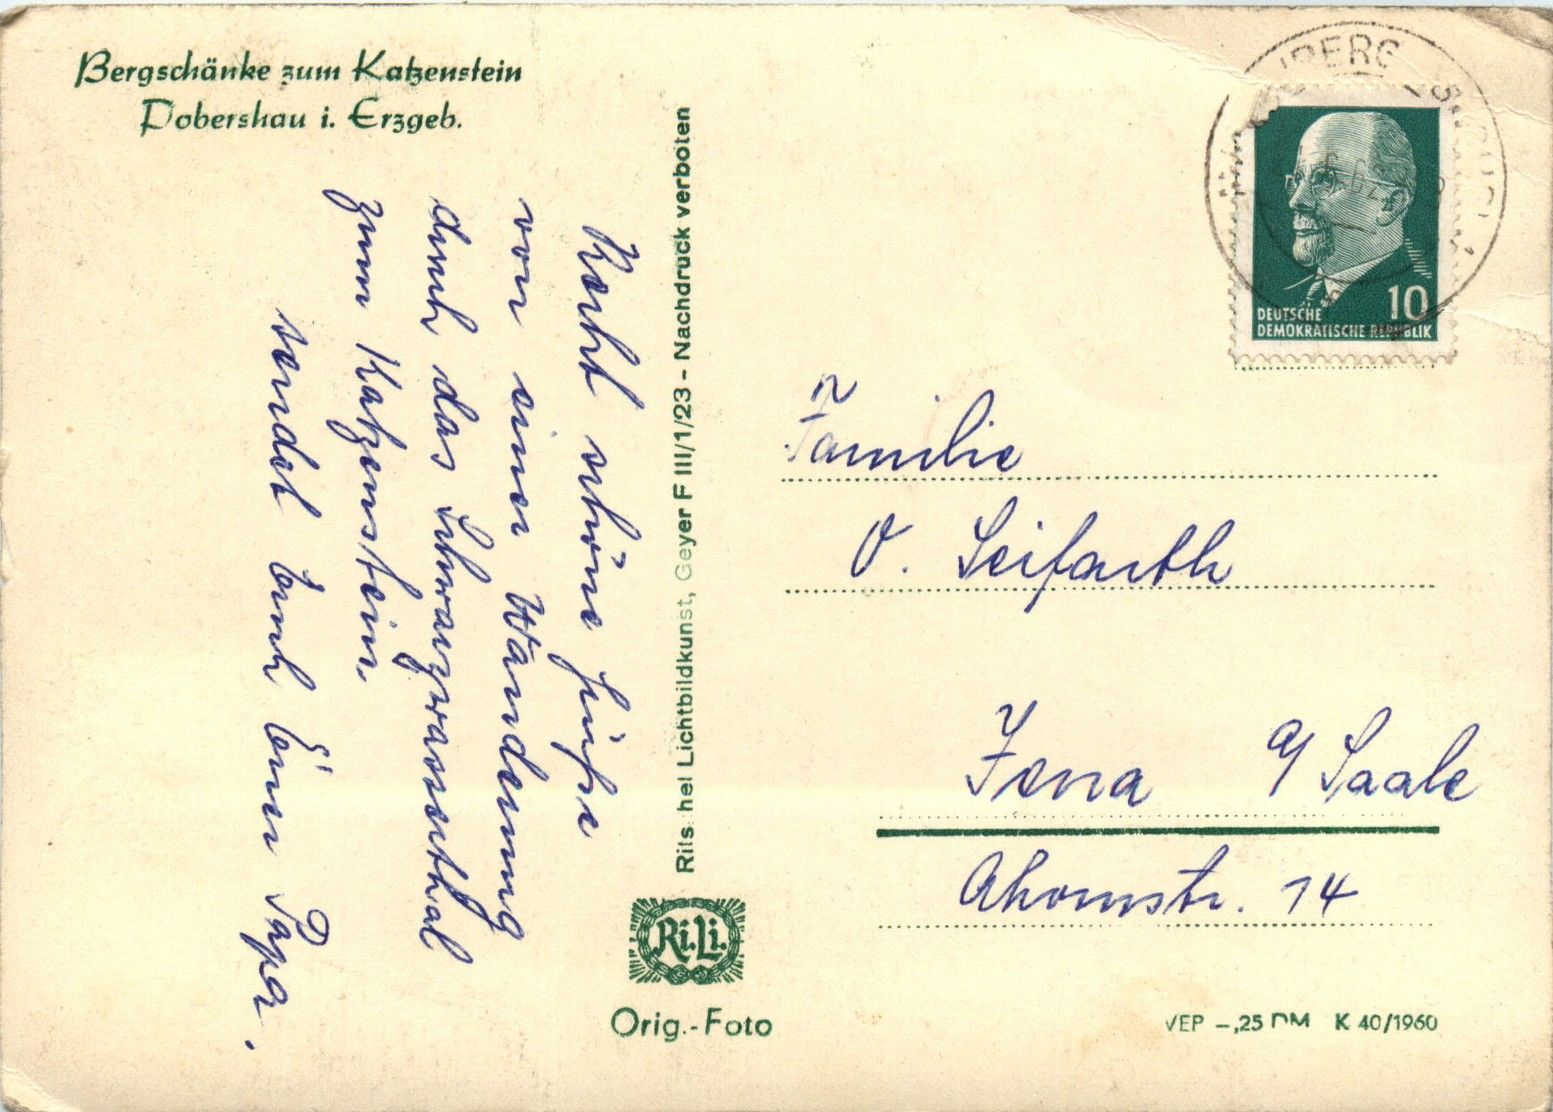 Bergschänke zum Katzenstein
Pobershau i. Erzgeb.
Recht schöne Grüße
von einer Wanderung
durch das Schwarzwassertal
zum Katzenstein,
sendet Euch Euer Papa.
Ritschel Lichtbildkunst, Geyer F III/1/23 - Nachdruck verboten
Ri.Li.
Orig.-Foto
10
DEUTSCHE
DEMOKRATISCHE REPUBLIK
Familie
O. Seifarth
Jena a/Saale
Ahornstr. 14
VEP -,25 DM K 40/1960